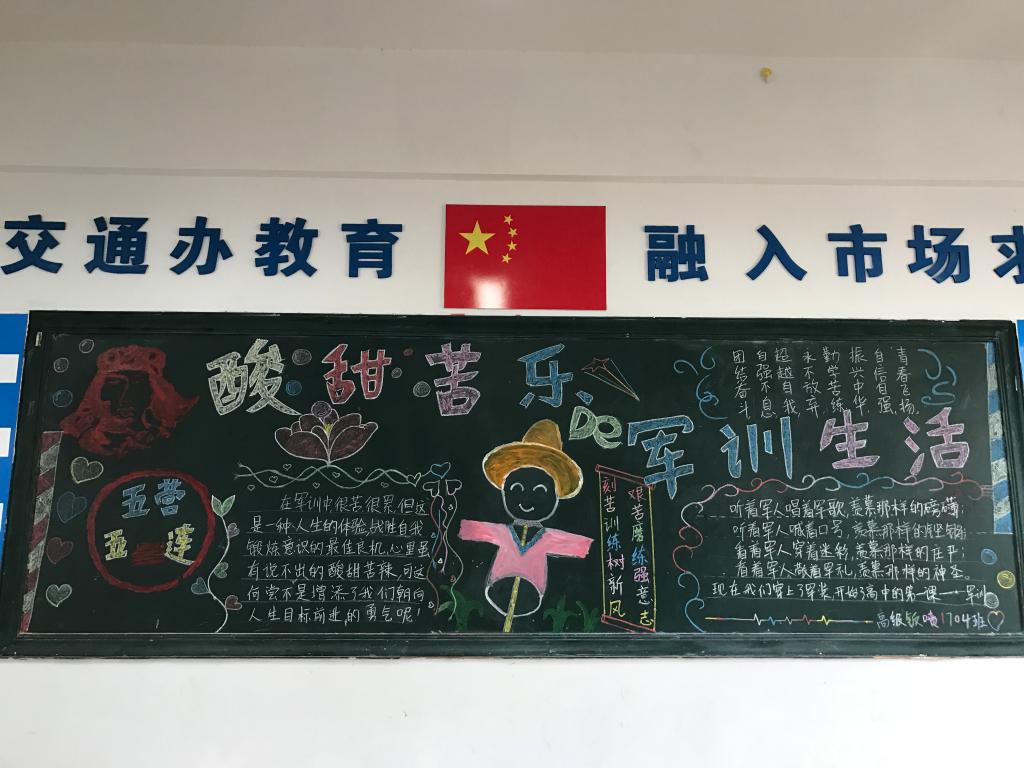 交通办教育
融入市场求
酸甜苦乐
De
军训生活
青春飞扬
自信自强
振兴中华
勤学苦练
永不放弃
超越自我
自强不息
团结奋斗
五营
五连
在军训中很苦很累,但这
是一种人生的体验,战胜自我
锻炼意识的最佳良机,心里虽
有说不出的酸甜苦辣,可这
何尝不是增添了我们朝向
人生目标前进的勇气呢!
艰苦磨练强意志
刻苦训练树新风
听着军人唱着军歌,羡慕那样的磅礴;
听着军人喊着口号,羡慕那样的铿锵;
看着军人穿着迷彩,羡慕那样的庄严;
看着军人敬着军礼,羡慕那样的神圣。
现在我们穿上了军装,开始了高中的第一课——军训
高级钣喷1704班